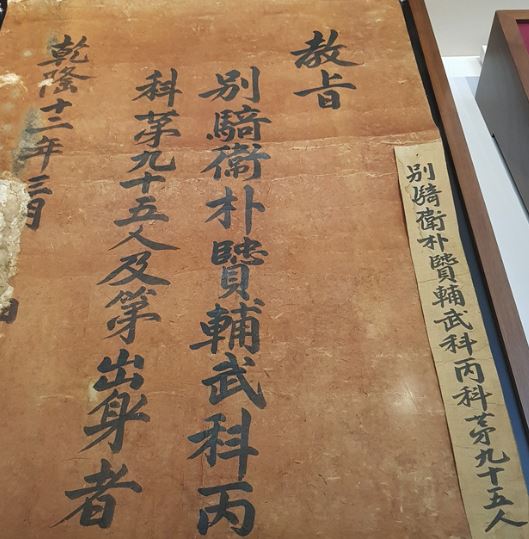 別騎衛朴贒輔武科丙科苐九十五人
教旨
別騎衛朴贒輔武科丙
科苐九十五人及第出身者
乾隆十二年三月